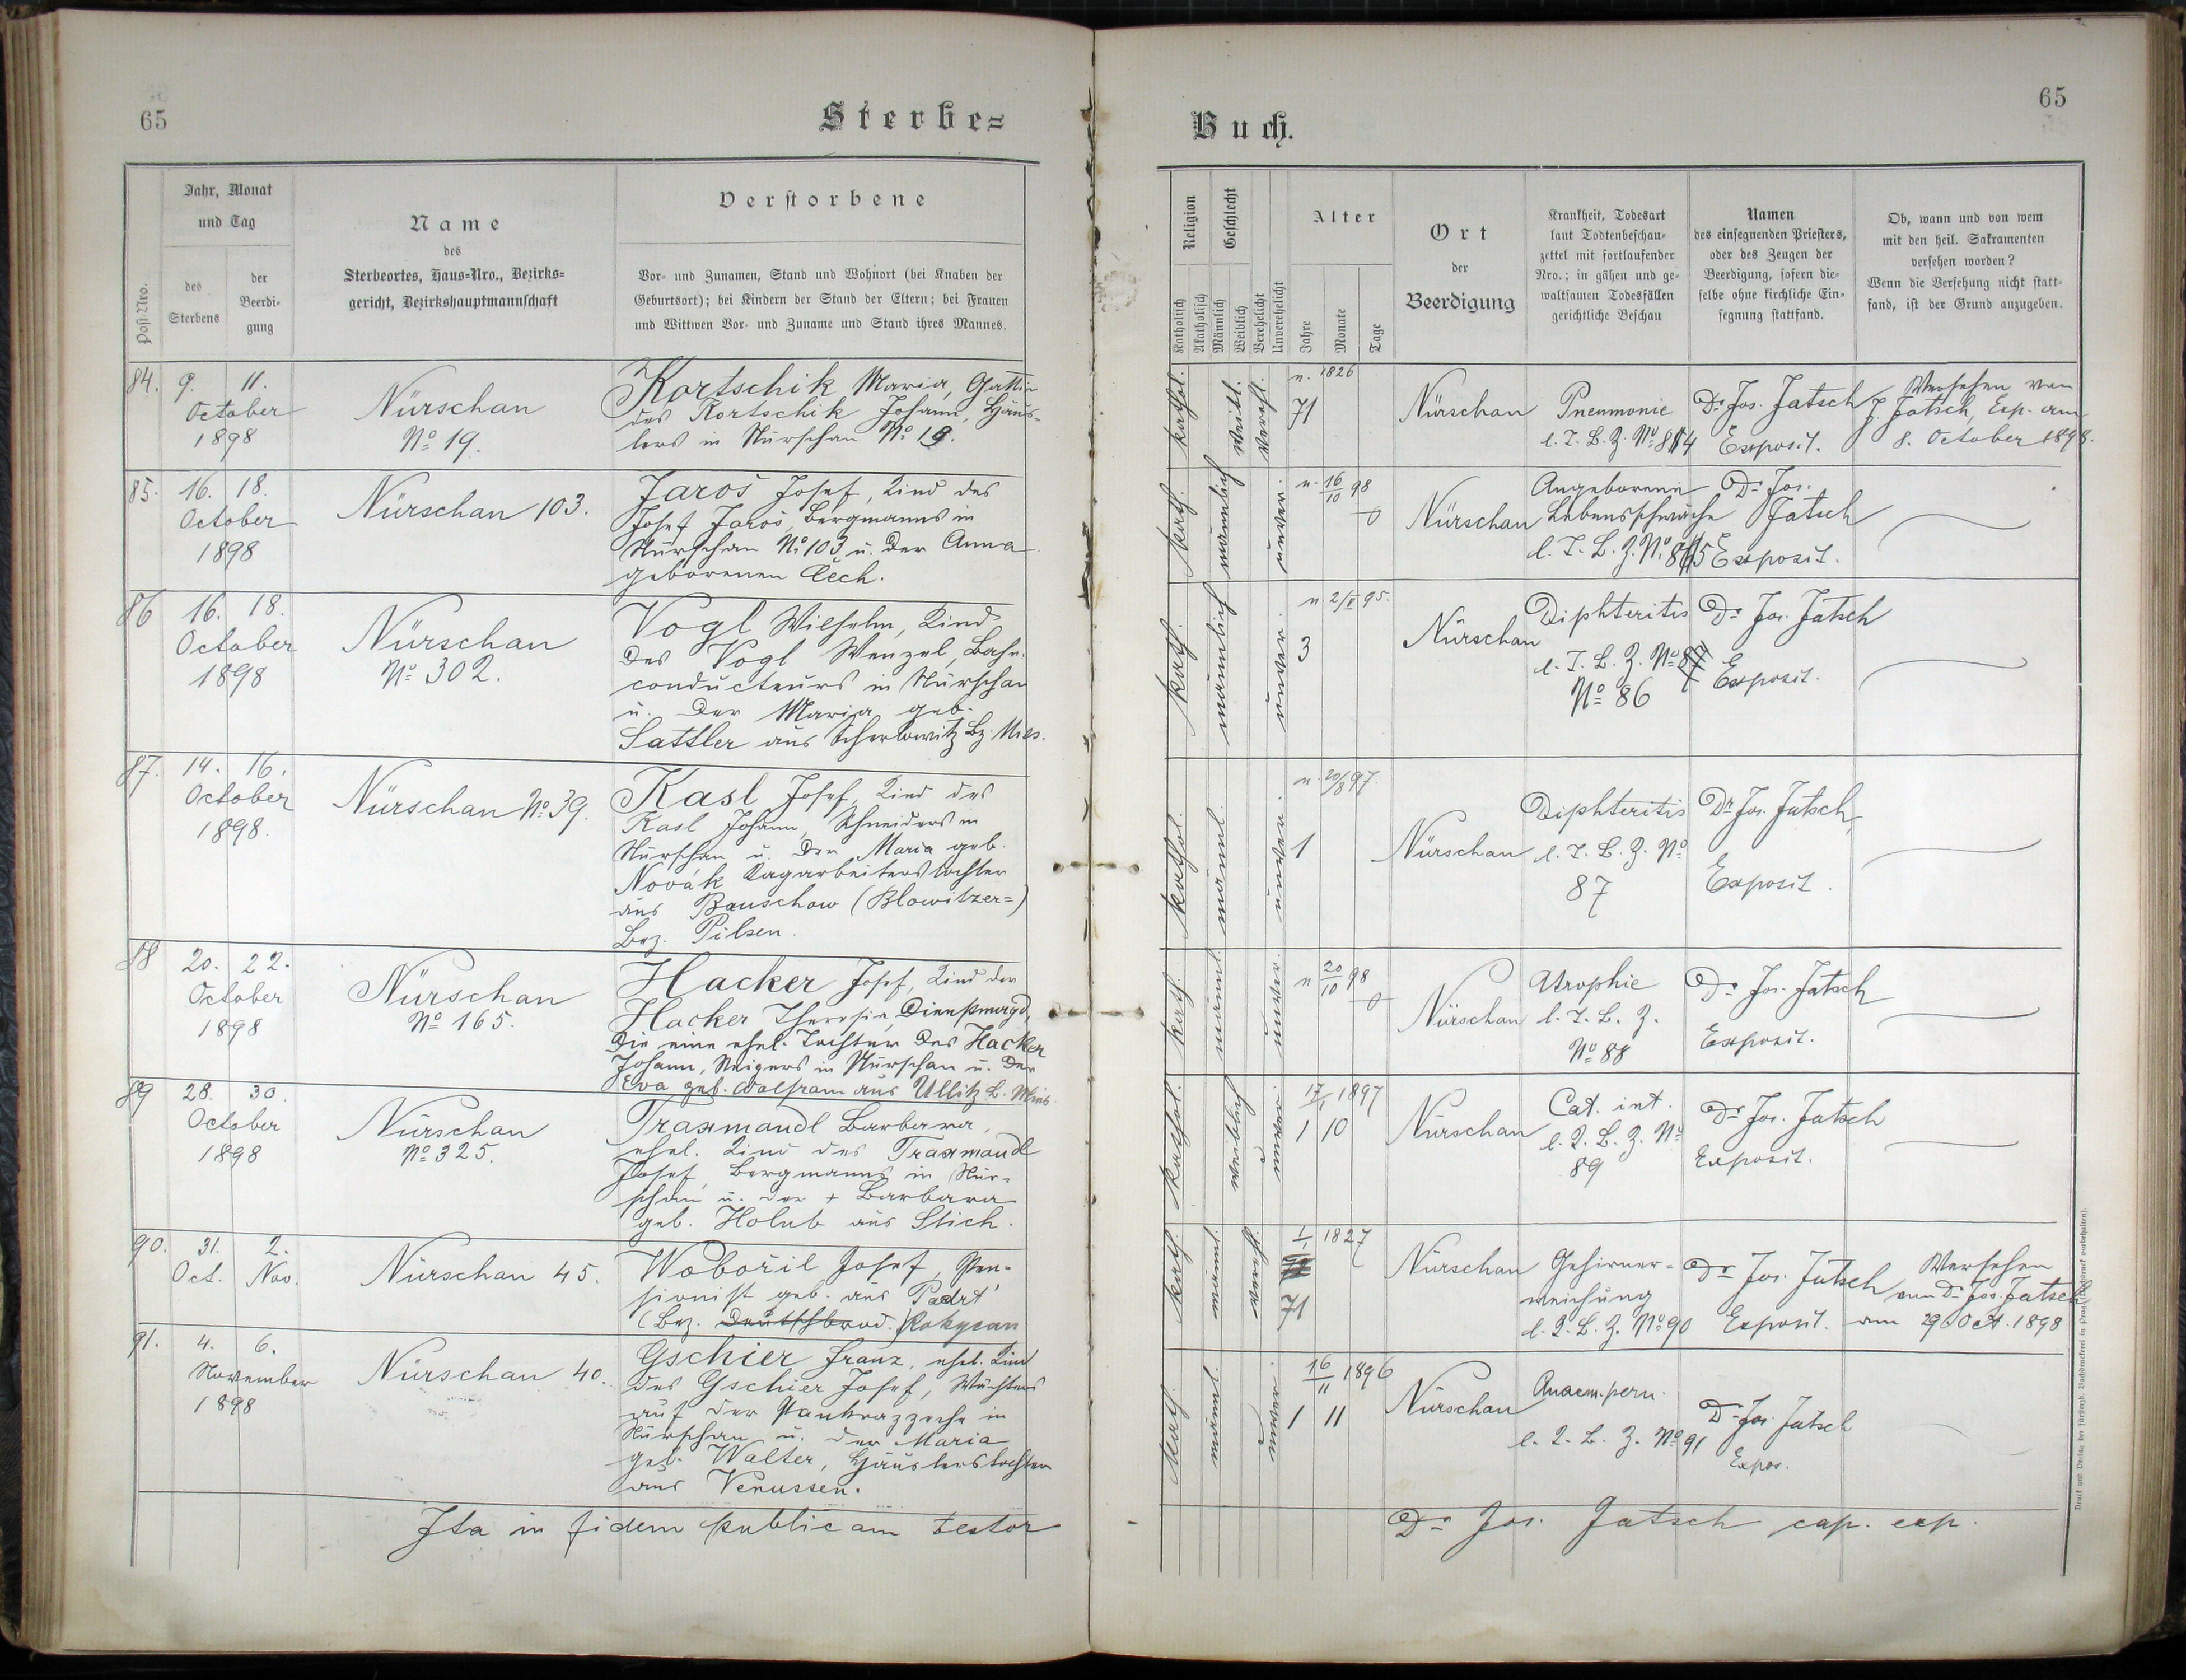 65
Sterbe=
Post-Nro.
Jahr, Monat
und Tag
des
Sterbens
der
Beerdi-
gung
Name
des
Sterbeortes, Haus-Nro., Bezirks=
gericht, Bezirkshauptmannschaft
Verstorbene
Vor- und Zunamen, Stand und Wohnort (bei Knaben der
Geburtsort); bei Kindern der Stand der Eltern; bei Frauen
und Wittwen Vor- und Zuname und Stand ihres Mannes.
84.
9. 11.
October
1898
Nürschan
No 19.
Kortschik Maria, Gattin
des Kortschik Johann, Häus-
lers in Nürschan No 19.
85.
16. 18.
October
1898
Nürschan 103.
Jaroš Josef, Kind des
Josef Jaroš, Bergmanns in
Nürschan No 103 u. der Anna
geborenen Čech.
86
16. 18.
October
1898
Nürschan
No 302.
Vogl Wilhelm, Kind
des Vogl Wenzel, Bahn-
conducteurs in Nürschan
u. der Maria geb.
Sattler aus Bz. Mies.
87.
14. 16.
October
1898.
Nürschan No 39.
Kasl Josef, Kind des
Kasl Johann, Schneiders in
Nürschan u. der Maria geb.
Novák Tagarbeiterstochter
aus Bauschow (Blowitzer=)
Bez. Pilsen.
88
20. 22.
October
1898
Nürschan
No 165.
Hacker Josef, Kind der
Hacker Theresia, Dienstmagd,
die eine ehel. Tochter des Hacker
Johann, Steigers in Nürschan u. der
Eva geb. Wolfram aus Ullitz B. Mies.
89
28. 30.
October
1898
Nürschan
No 325.
Traxmandl Barbara,
ehel. Kind des Traxmandl
Josef, Bergmanns in Nür-
schan u. der + Barbara
geb. Holub aus Stich.
90.
31. 2.
Oct. Nov.
Nürschan 45.
Wobořil Josef, Pen-
sionist geb. aus Padrt'
(Bez. Deutschbrod.) Rokycan
91.
4. 6.
November
1898
Nürschan 40.
Gschier Franz, ehel. Kind
des Gschier Josef, Wächters
auf der Pankrazzeche in
Nürschan u. der Maria
geb. Walter, Häuslerstochter
aus Wenussen.
Ita in fidem publicam testor
65
Buch.
Religion
Katholisch
Akatholisch
Geschlecht
Männlich
Weiblich
Verehelicht
Unverehelicht
Alter
Jahre
Monate
Tage
Ort
der
Beerdigung
Krankheit, Todesart
laut Todtenbeschau-
zettel mit fortlaufender
Nro.; in gähen und ge-
waltsamen Todesfällen
gerichtliche Beschau
Namen
des einsegnenden Priesters,
oder des Zeugen der
Beerdigung, sofern die-
selbe ohne kirchliche Ein-
segnung stattfand.
Ob, wann und von wem
mit den heil. Sakramenten
versehen worden?
Wenn die Versehung nicht statt-
fand, ist der Grund anzugeben.
kathol.
weibl.
verehl.
n. 1826
71
Nürschan
Pneumonie
l. T. B. Z. No 84
Dr Jos. Jatsch
Exposit.
Versehen von
J. Jatsch, Exp. am
8. October 1898.
kath.
männlich
unver.
n. 16/10 98
0
Nürschan
Angeborene
Lebensschwäche
l. T. B. Z. No. 85
Dr Jos.
Jatsch
Exposit.
kath.
männlich
unver.
n 2/V 95.
3
Nürschan
Diphteritis
l. T. B. Z. No 87
No 86
Dr Jos. Jatsch
Exposit.
kathol.
männl.
unver.
n. 20/8 97.
1
Nürschan
Diphteritis
l. T. B. Z. No
87
Dr Jos. Jatsch,
Exposit.
kath.
männl.
unver.
n 20/10 98
0
Nürschan
Atrophie
l. T. B. Z.
No 88
Dr Jos. Jatsch
Exposit.
kathol.
weiblich
unver.
17/1 1897
1 10
Nürschan
Cat. int.
l. T. B. Z. No
89
Dr Jos. Jatsch
Exposit.
kath.
männl.
vereh.
1/1 1827
71
Nürschan
Gehirner=
weichung
l. T. B. Z. No 90
Dr Jos. Jatsch
Exposit.
Versehen
von Dr Jos. Jatsch
am 29 Oct. 1898
kath.
männl.
unver.
16/11 1896
1 11
Nürschan
Anaem. pern.
l. T. B. Z. No 91
Dr Jos. Jatsch
Expos.
Dr Jos. Jatsch cap. exp.
Druck und Verlag der fürsterzb. Buchdruckerei in Prag. (Nachdruck vorbehalten).